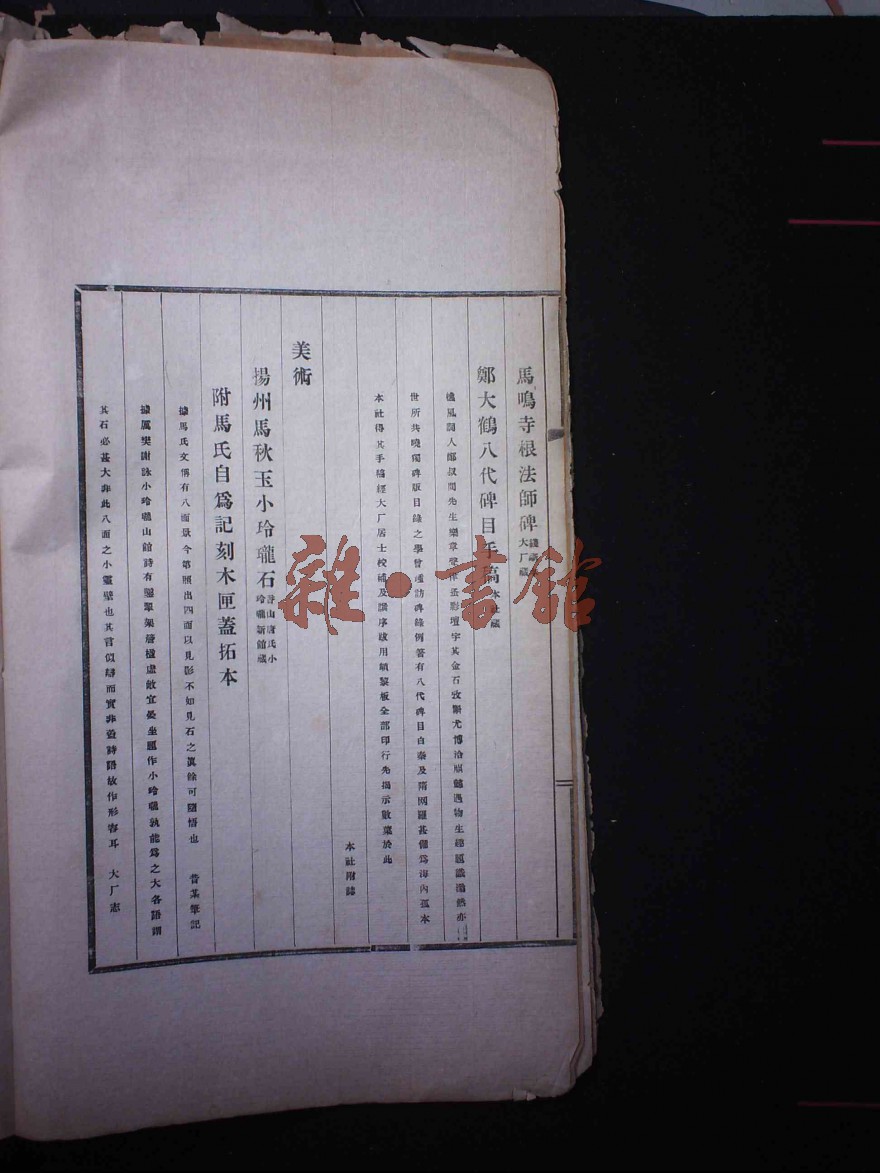 馬鳴寺根法師碑 大厂藏
鄭大鶴八代碑目手稿 本社藏
風詞人鄭叔問先生樂章聲律蜚影壇宇其金石攷尤博洽遇物生題識亦
世所共曉獨碑版目錄之學曾訪碑錄例箸有八代碑目自秦及隋网羅甚備爲海內孤本
本社得其手稿經大厂居士校補及序跋用板全部印行先揭示數葉於此
本社附識
美術
揚州馬秋玉小玲瓏石 山唐氏小玲瓏新館藏
附馬氏自爲記刻木匣蓋拓本
據馬氏文稱有八面景今第照出四面以見影不如見石之眞餘可隨悟也 昔某筆記
據厲樊謝詠小玲瓏山館詩有虛敞宜晏坐題作小玲瓏孰能爲之大各語謂
其石必甚大非此八面之小靈壁也其言似辯而實非蓋詩語故作形容耳 大厂志
雜·書館